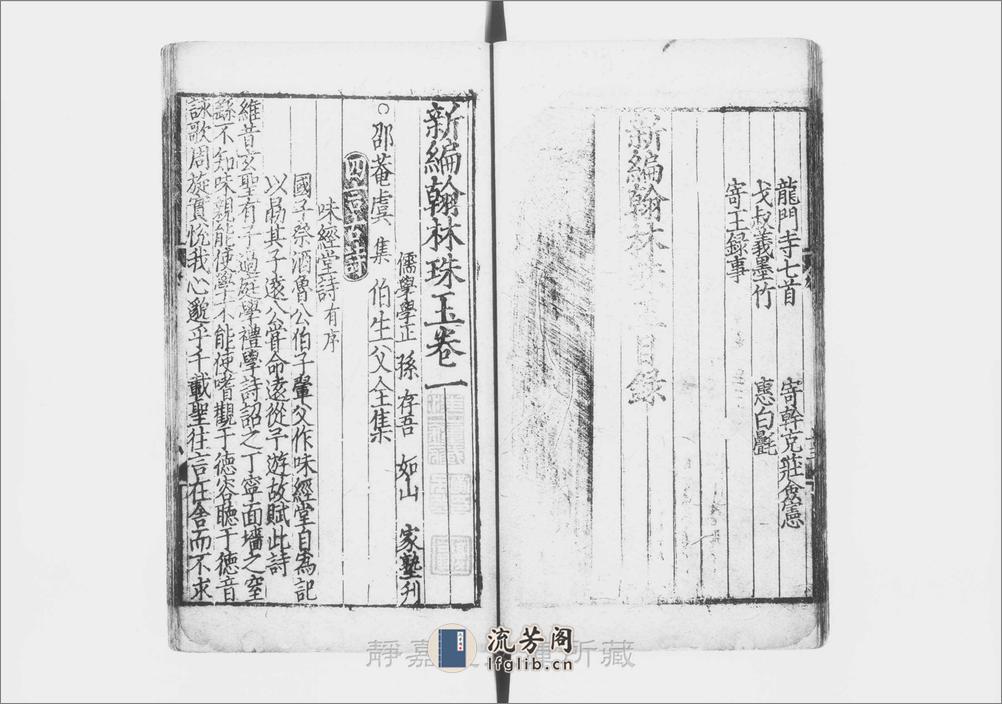 龍門寺七首　寄幹克莊僉憲
戈叔義墨竹　惠白氈
寄王録事
新編翰林珠玉目録
新編翰林珠玉卷一
儒學學正　孫　存吾　如山　家塾刊
○邵菴虞　集　伯生父全集
四言古詩
味經堂詩有序
國子祭酒魯公伯子翬父作味經堂自為記
以勗其子遠公嘗命遠從予遊故賦此詩
維昔玄聖有子過庭學禮學詩詔之丁寧面墻之窒
繇不知味親能使學不能使嗜觀于德容聽于德音
詠歌周旋實悅我心邈乎千載聖往言在舍而不求
靜嘉　所藏
流芳阁
lfglib.cn